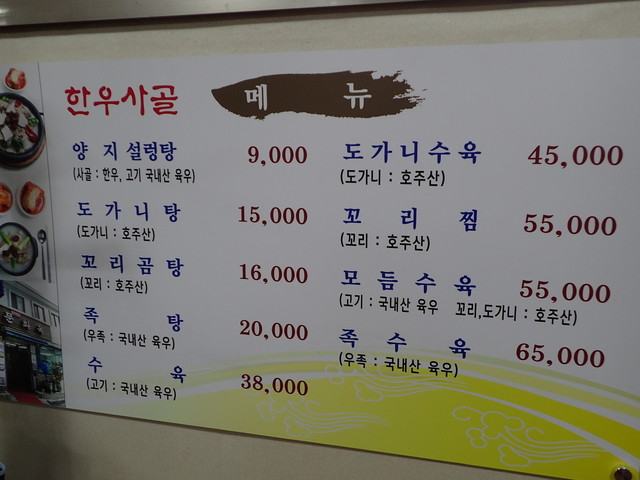 한우사골
메 뉴
양 지 설렁탕 9,000
(사골 : 한우, 고기 국내산 육우)
도 가 니 탕 15,000
(도가니 : 호주산)
꼬 리 곰 탕 16,000
(꼬리 : 호주산)
족 탕 20,000
(우족 : 국내산 육우)
수 육 38,000
(고기 : 국내산 육우)
도 가 니 수 육 45,000
(도가니 : 호주산)
꼬 리 찜 55,000
(꼬리 : 호주산)
모 듬 수 육 55,000
(고기 : 국내산 육우 꼬리,도가니 : 호주산)
족 수 육 65,000
(우족 : 국내산 육우)